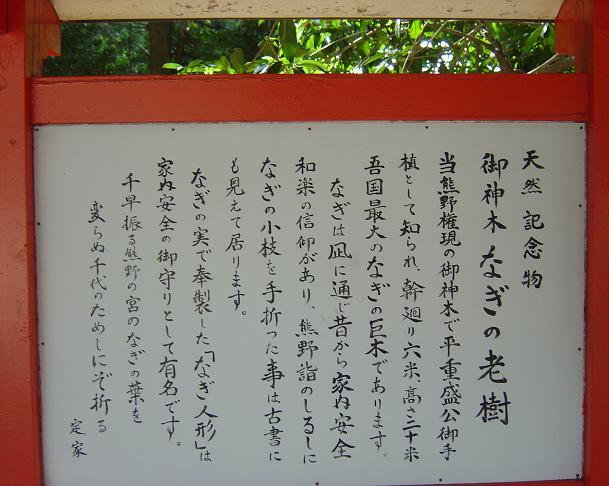 天然記念物
御神木なぎの老樹
当熊野権現の御神木で平重盛公御手
植として知られ、幹廻り六米、高さ二十米
吾国最大のなぎの巨木であります。
なぎは凪に通じ昔から家内安全
和楽の信仰があり、熊野詣のしるしに
なぎの小枝を手折った事は古書に
も見えて居ります。
なぎの実で奉製した「なぎ人形」は
家内安全の御守りとして有名です。
千早振る熊野の宮のなぎの葉を
変らぬ千代のためしにぞ折る
定家